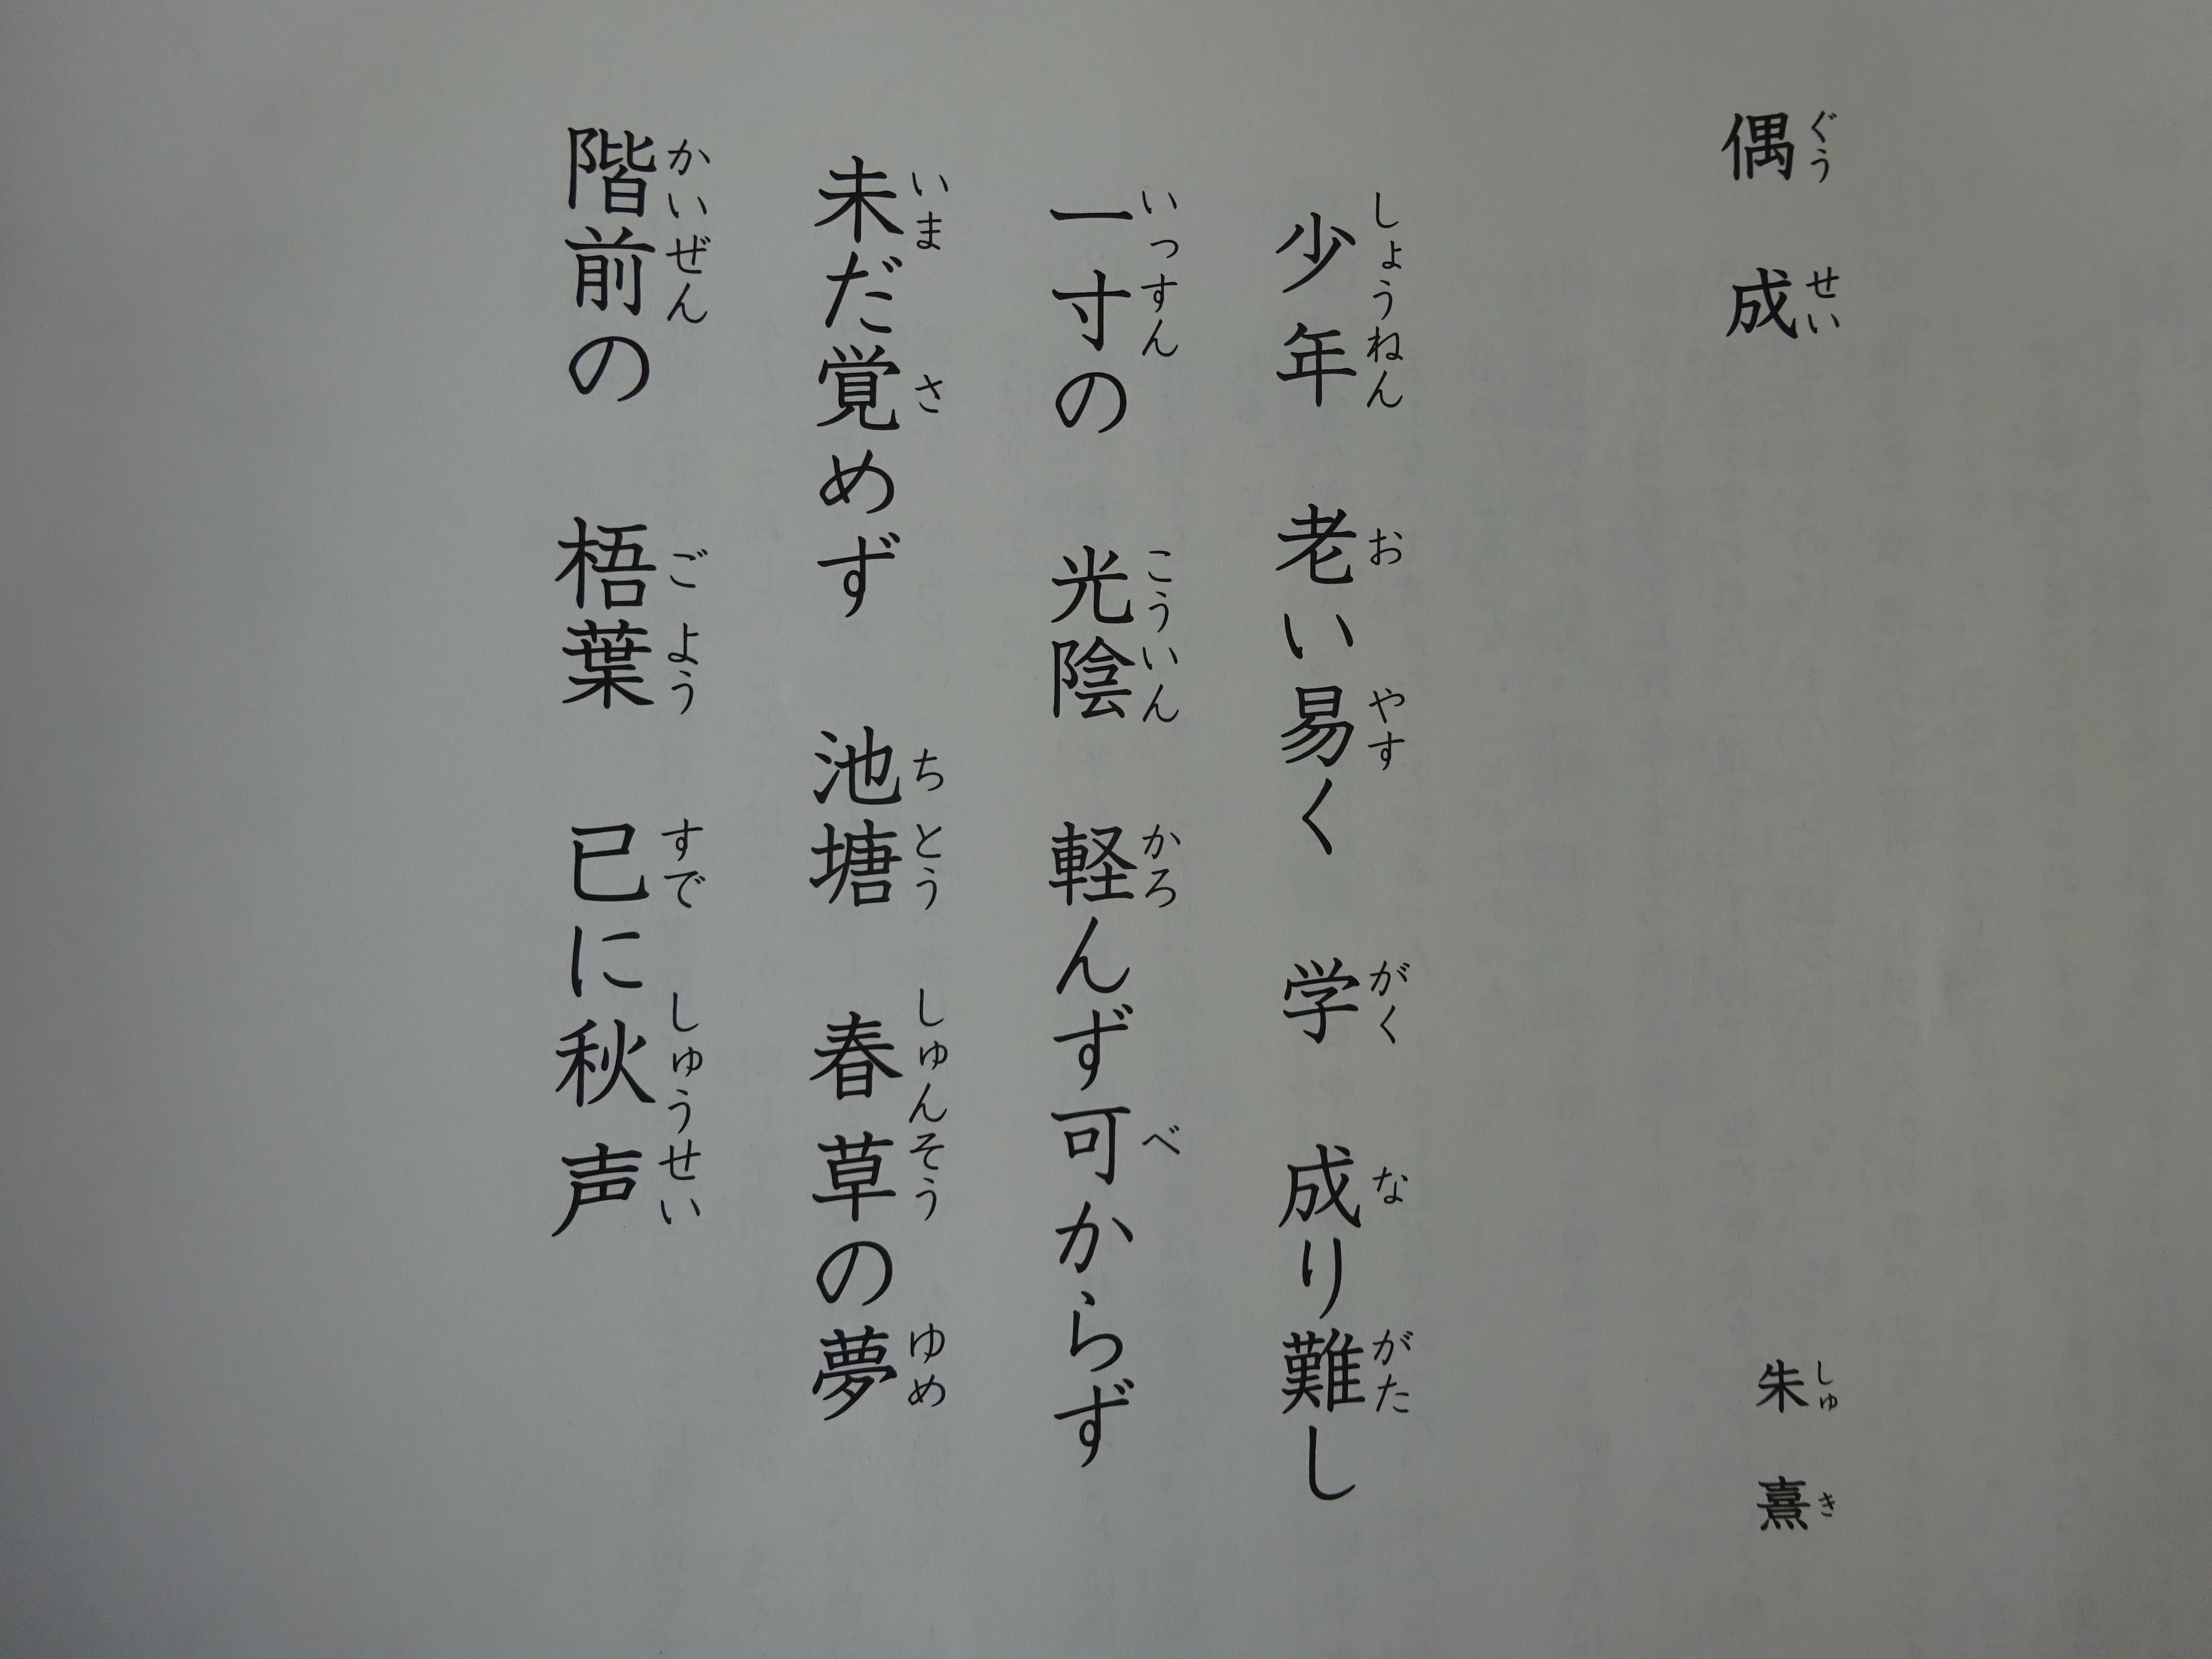 偶成 朱熹
ぐうせい しゅき
少年 老い易く 学 成り難し
しょうねん お やす がく な がた
一寸の 光陰 軽んず可からず
いっすん こういん かろ べ
未だ覚めず 池塘 春草の夢
いま さ ちとう しゅんそう ゆめ
階前の 梧葉 已に秋声
かいぜん ごよう すで しゅうせい